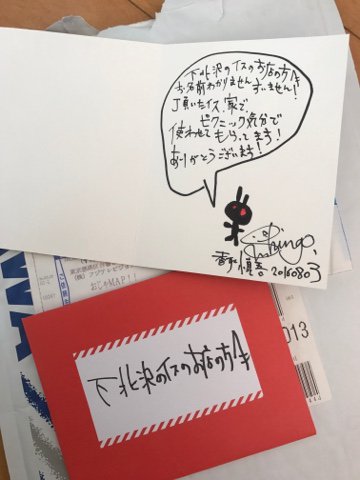 下北沢のイスのお店の方へ
お名前わかりません すいません!
頂いたイス、家で、
ピクニック気分で
使わせてもらってます!
ありがとうございます!
Shingo
香取慎吾 20160803
(株)フジテレビ
おじゃMAP!!
013
下北沢のイスのお店の方へ